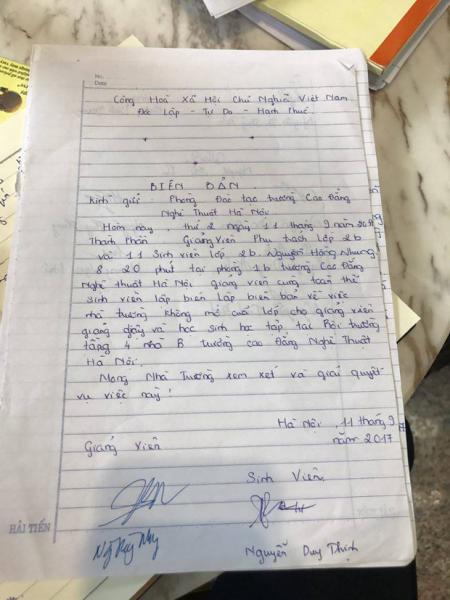 No.
Date
Cộng Hoà Xã Hội Chủ Nghĩa Việt Nam
Độc Lập - Tự Do - Hạnh Phúc.
BIÊN BẢN
Kính gửi: Phòng Đào tạo trường Cao Đẳng
Nghệ Thuật Hà Nội
Hôm nay, thứ 2 ngày 11 tháng 9 năm
Thành Phần Giảng Viên Phụ trách Lớp 2b
và 11 Sinh viên lớp 2b. Nguyễn Hồng Nhung
8 20 phút tại phòng 1b trường Cao Đẳng
Nghệ thuật Hà Nội giảng viên cùng toàn thể
sinh viên lập biên lập biên bản về việc
nhà trường không mở cửa lớp cho giảng viên
giảng dạy và học sinh học tập, tại trường
tầng 4 nhà B trường cao Đẳng Nghệ Thuật
Hà Nội.
Mong Nhà Trường xem xét và giải quyết
vụ việc này!
Hà Nội, 11 tháng 9
năm 2017
Giảng Viên
Sinh Viên
HẢI TIẾN
Nguyễn Duy Thịnh